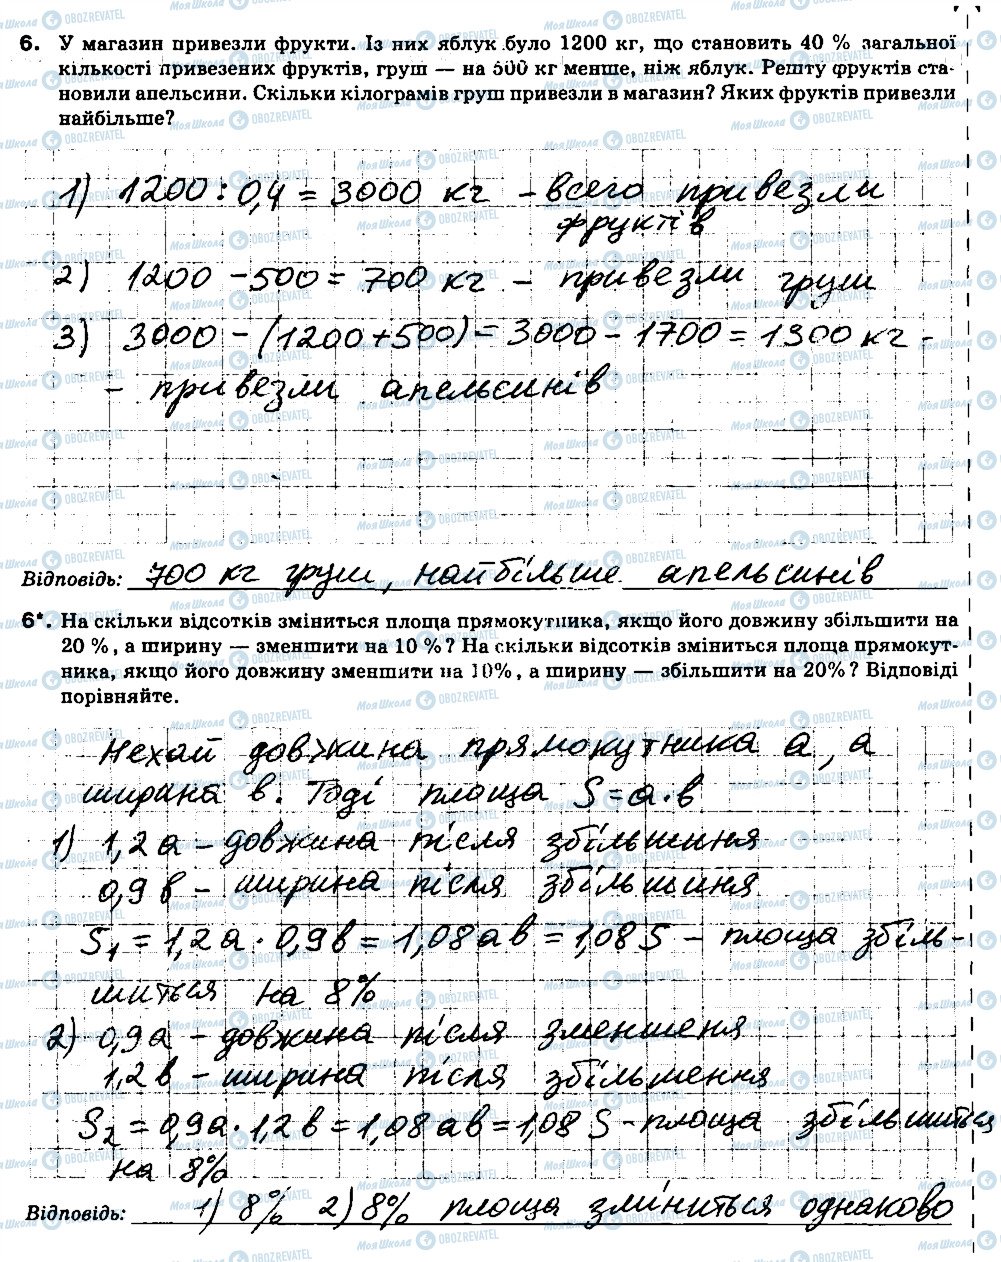 6. У магазин привезли фрукти. Із них яблук було 1200 кг, що становить 40 % загальної
кількості привезених фруктів, груш — на 500 кг менше, ніж яблук. Решту фруктів ста-
новили апельсини. Скільки кілограмів груш привезли в магазин? Яких фруктів привезли
найбільше?
1) 1200 : 0,4 = 3000 кг - всего привезли
фруктів
2) 1200 - 500 = 700 кг - привезли груш
3) 3000 - (1200 + 500) = 3000 - 1700 = 1300 кг -
- привезли апельсинів
Відповідь: 700 кг груш, найбільше апельсинів
6*. На скільки відсотків зміниться площа прямокутника, якщо його довжину збільшити на
20 %, а ширину — зменшити на 10 %? На скільки відсотків зміниться площа прямокут-
ника, якщо його довжину зменшити на 10%, а ширину — збільшити на 20%? Відповіді
порівняйте.
Нехай довжина прямокутника а, а
ширина в. Тоді площа S = а · в
1) 1,2а - довжина після збільшиння
0,9в - ширина після збільшиня
S₁ = 1,2а · 0,9в = 1,08ав = 1,08 S - площа збіль-
шиться на 8%
2) 0,9а - довжина після зменшеня
1,2в - ширина після збільшення
S₂ = 0,9а · 1,2в = 1,08ав = 1,08 S - площа збільшиться
на 8%
Відповідь: 1) 8% 2) 8% площа зміниться однаково
МояШкола OBOZREVATEL